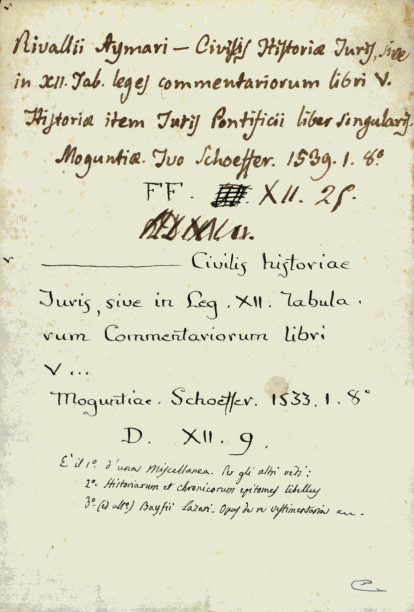 Rivallii Aymari — Civilis Historiæ Juris, sive
in XII. Tab. leges commentariorum libri V.
Historiæ item Juris Pontificii liber singularis.
Moguntiæ. Ivo Schoeffer. 1539. 1. 8°
FF. XII. 25.
——— Civilis historiae
Juris, sive in Leg. XII. Tabula.
rum Commentariorum libri
V...
Moguntiae. Schoeffer. 1533. 1. 8°
D. XII. 9.
E' il 1°. d'una Miscellanea. Per gli altri vedi:
2°. Historiarum et chronicorum epitomes libellus
3°. (ed ulto) Bayfii Lazari. Opus de re vestimentaria